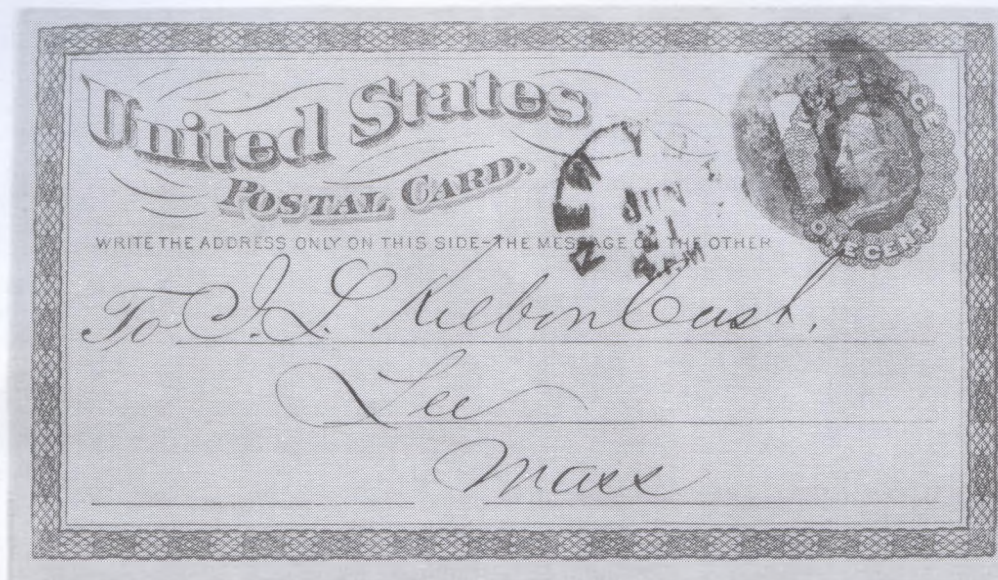 United States
POSTAL CARD.
WRITE THE ADDRESS ONLY ON THIS SIDE-THE MESSAGE ON THE OTHER
NEW Y
JUN
ONE CENT
To J. L. Kilbon Cash,
Lee
Mass